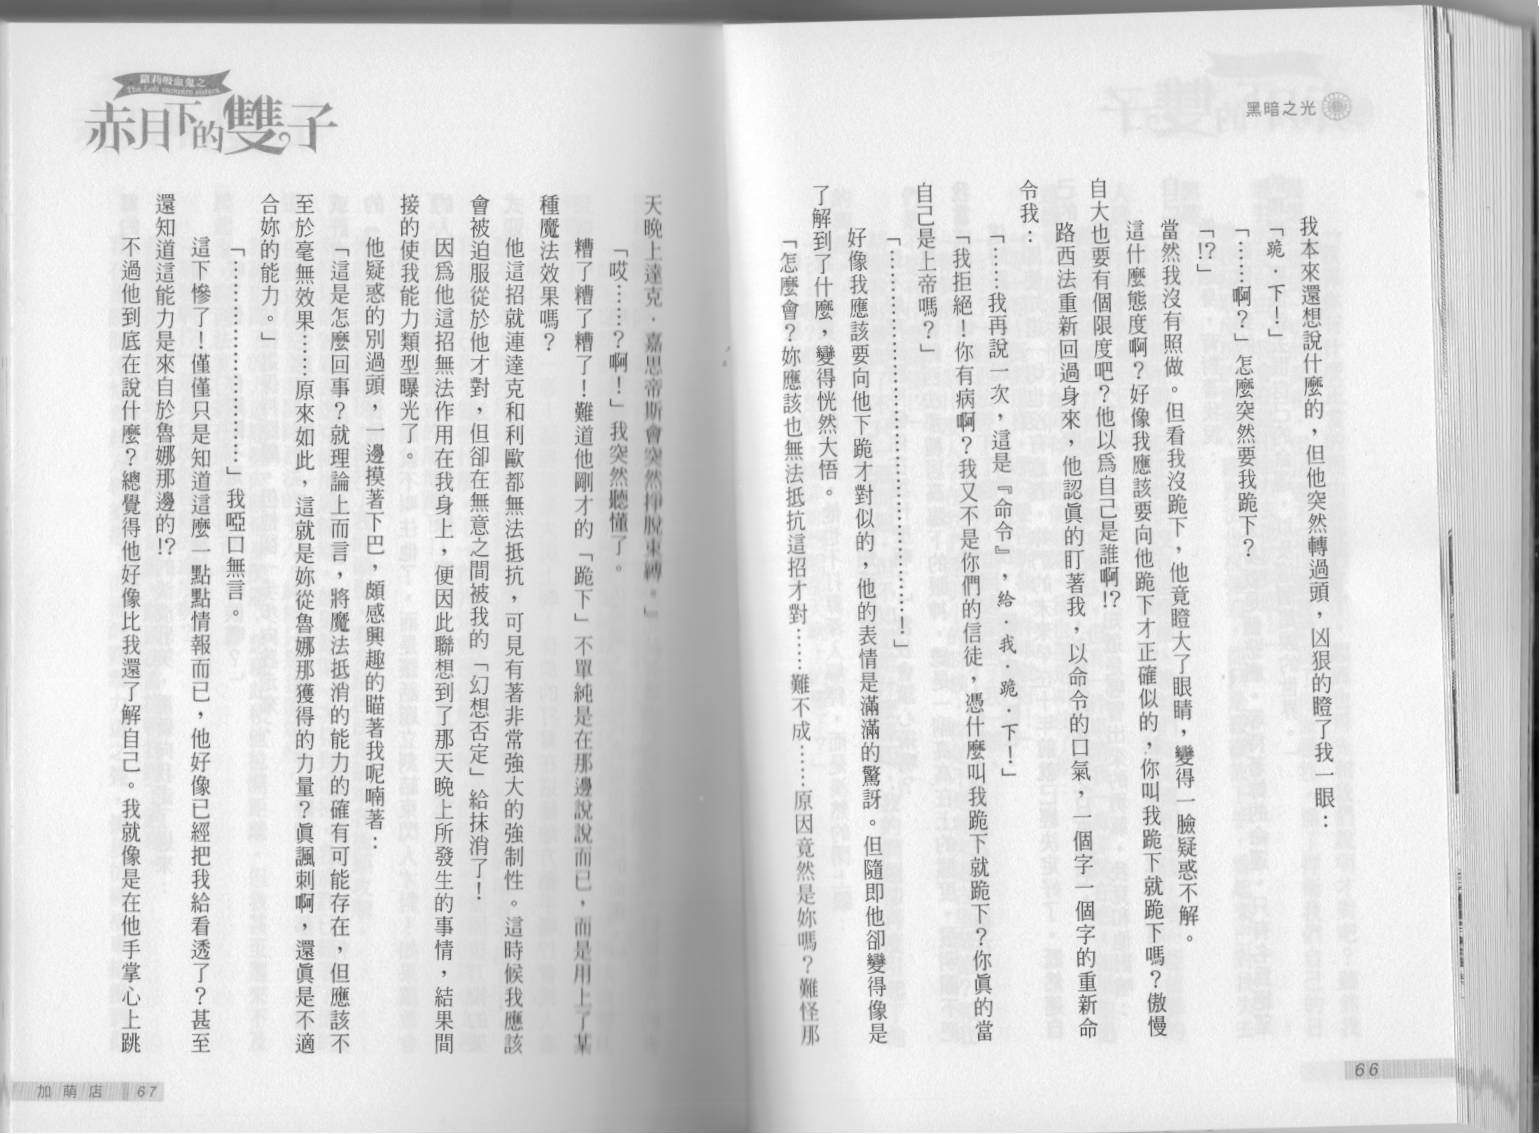 黑暗之光
我本來還想說什麼的，但他突然轉過頭，凶狠的瞪了我一眼：
「跪．下！」
「……啊？」怎麼突然要我跪下？
「!?」
當然我沒有照做。但看我沒跪下，他竟瞪大了眼睛，變得一臉疑惑不解。
這什麼態度啊？好像我應該要向他跪下才正確似的，你叫我跪下就跪下嗎？傲慢
自大也要有個限度吧？他以爲自己是誰啊!?
路西法重新回過身來，他認眞的盯著我，以命令的口氣，一個字一個字的重新命
令我：
「……我再說一次，這是『命令』，給．我．跪．下！」
「我拒絕！你有病啊？我又不是你們的信徒，憑什麼叫我跪下就跪下？你眞的當
自己是上帝嗎？」
「………………………………………！」
好像我應該要向他下跪才對似的，他的表情是滿滿的驚訝。但隨即他卻變得像是
了解到了什麼，變得恍然大悟。
「怎麼會？妳應該也無法抵抗這招才對……難不成……原因竟然是妳嗎？難怪那
66
蘿莉吸血鬼之
The Loli vampire sisters
赤月下的雙子
天晚上達克．嘉思帝斯會突然掙脫束縛。」
「哎……？啊！」我突然聽懂了。
糟了糟了糟了！難道他剛才的「跪下」不單純是在那邊說說而已，而是用上了某
種魔法效果嗎？
他這招就連達克和利歐都無法抵抗，可見有著非常強大的強制性。這時候我應該
會被迫服從於他才對，但卻在無意之間被我的「幻想否定」給抹消了！
因爲他這招無法作用在我身上，便因此聯想到了那天晚上所發生的事情，結果間
接的使我能力類型曝光了。
他疑惑的別過頭，一邊摸著下巴，頗感興趣的瞄著我呢喃著：
「這是怎麼回事？就理論上而言，將魔法抵消的能力的確有可能存在，但應該不
至於毫無效果……原來如此，這就是妳從魯娜那獲得的力量？眞諷刺啊，還眞是不適
合妳的能力。」
「…………………………」我啞口無言。
這下慘了！僅僅只是知道這麼一點點情報而已，他好像已經把我給看透了？甚至
還知道這能力是來自於魯娜那邊的!?
不過他到底在說什麼？總覺得他好像比我還了解自己。我就像是在他手掌心上跳
加萌店 67